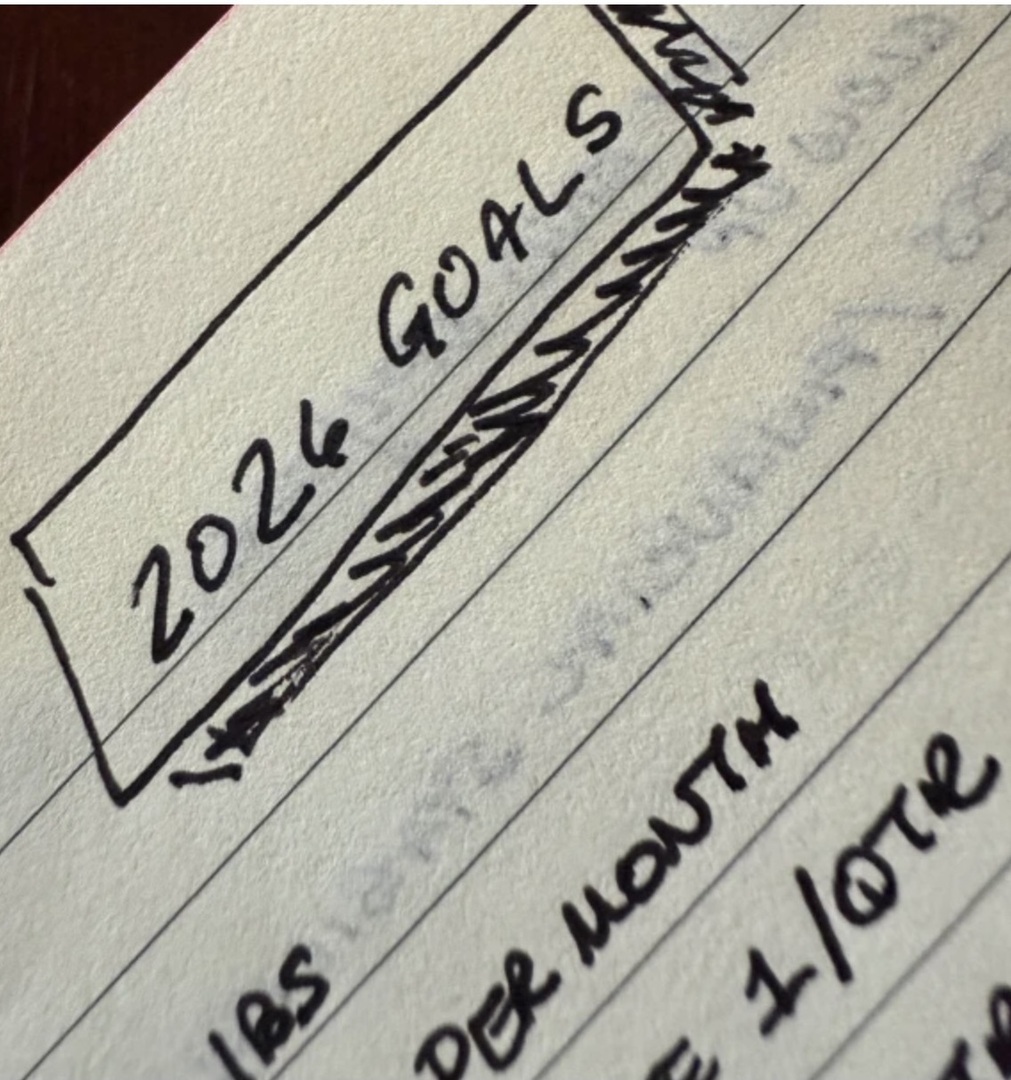 2026 GOALS
LBS
PER MONTH
1/QTR